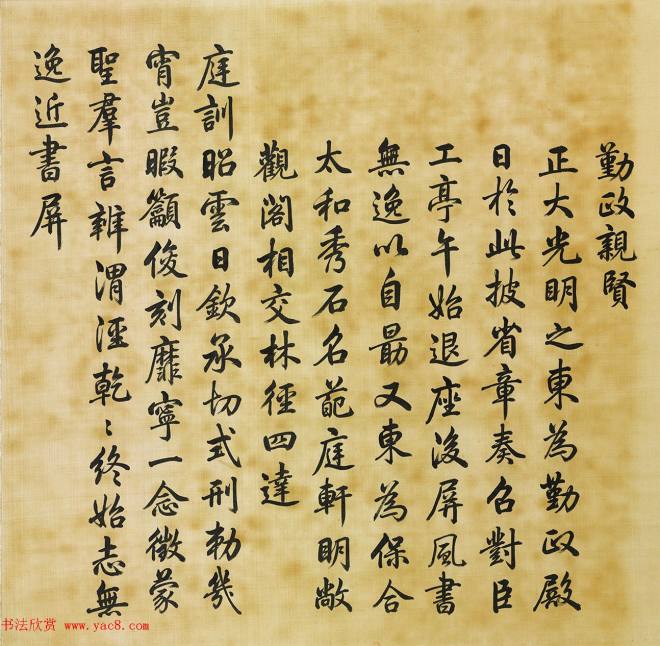 勤政親賢
正大光明之東為勤政殿
日於此披省章奏召對臣
工亭午始退座後屏風書
無逸以自勗又東為保合
太和秀石名葩庭軒明敞
觀閣相交林徑四達
庭訓昭雲日欽承切式刑勅幾
宵豈暇籲俊刻靡寧一念徵蒙
聖羣言辨渭涇乾〻終始志無
逸近書屏
书法欣赏 www.yac8.com